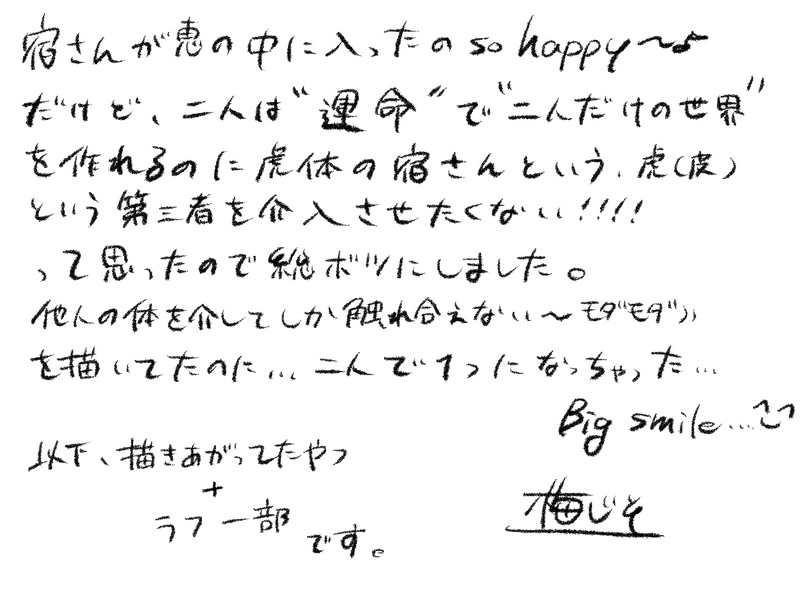 宿さんが恵の中に入ったの so happy〜♪
だけど、二人は“運命”で“二人だけの世界”
を作れるのに虎体の宿さんという、虎(皮)
という第三者を介入させたくない!!!!
って思ったので総ボツにしました。
他人の体を介してしか触れ合えない〜モダモダ))
を描いてたのに…二人で1つになっちゃった…
Big smile...
以下、描きあがってたやつ
+
ラフ一部
です。
梅じそ